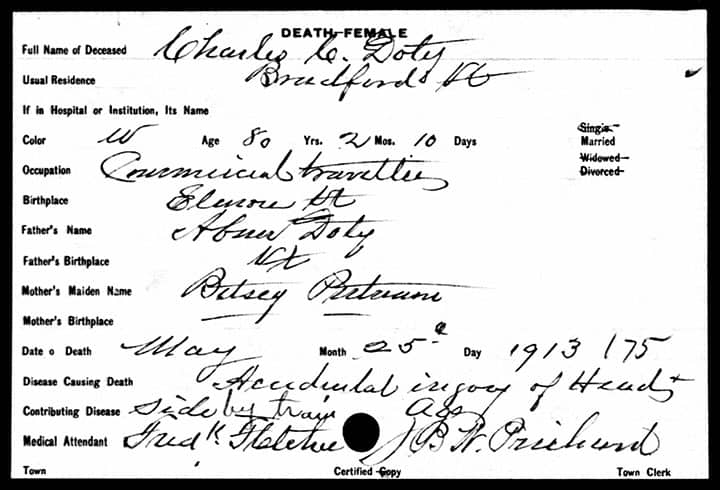 DEATH-FEMALE
Full Name of Deceased Charles C. Doty
Usual Residence Bradford Vt
If in Hospital or Institution, Its Name
Color W Age 80 Yrs. 2 Mos. 10 Days
Single
Married
Widowed
Divorced
Occupation Commercial traveller
Birthplace Elmore Vt
Father's Name Abner Doty
Father's Birthplace Vt
Mother's Maiden Name Betsey Putnam
Mother's Birthplace
Date o Death May Month 25 Day 1913 175
Disease Causing Death Accidental injury of Head +
Contributing Disease side by train Age
Medical Attendant Fred k Fletcher J B W Prichard
Town Certified Copy Town Clerk